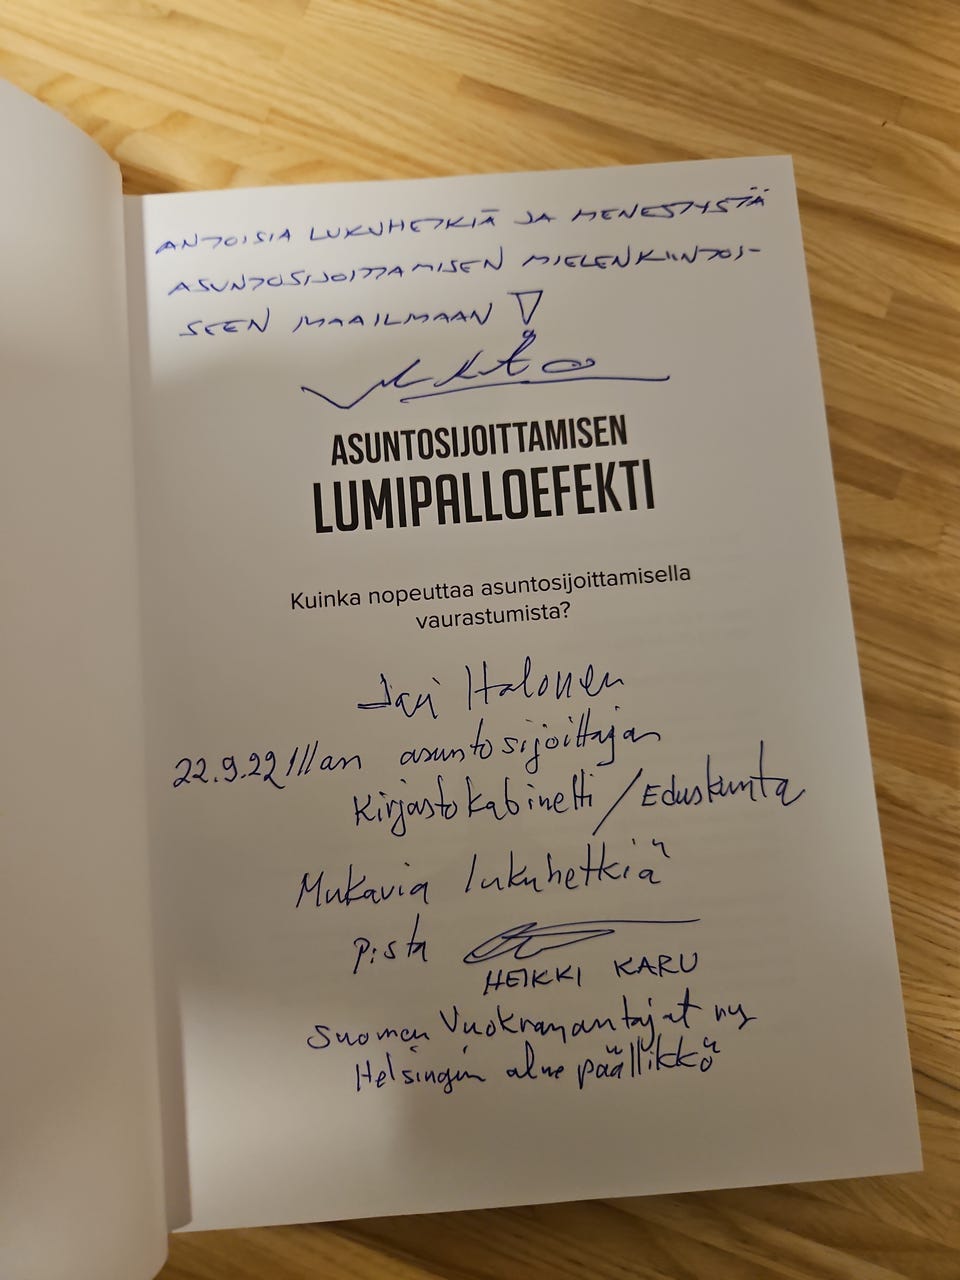 ANTOISIA LUKUHETKIÄ JA MENESTYSTÄ
ASUNTOSIJOITTAMISEN MIELENKIINTOI-
SEEN MAAILMAAN!
ASUNTOSIJOITTAMISEN
LUMIPALLOEFEKTI
Kuinka nopeuttaa asuntosijoittamisella
vaurastumista?
Jari Halonen
22.9.22 Illan asuntosijoittajan
Kirjastokabinetti / Eduskunta
Mukavia lukuhetkiä
HEIKKI KARU
Suomen Vuokranantajat ry
Helsingin aluepäällikkö